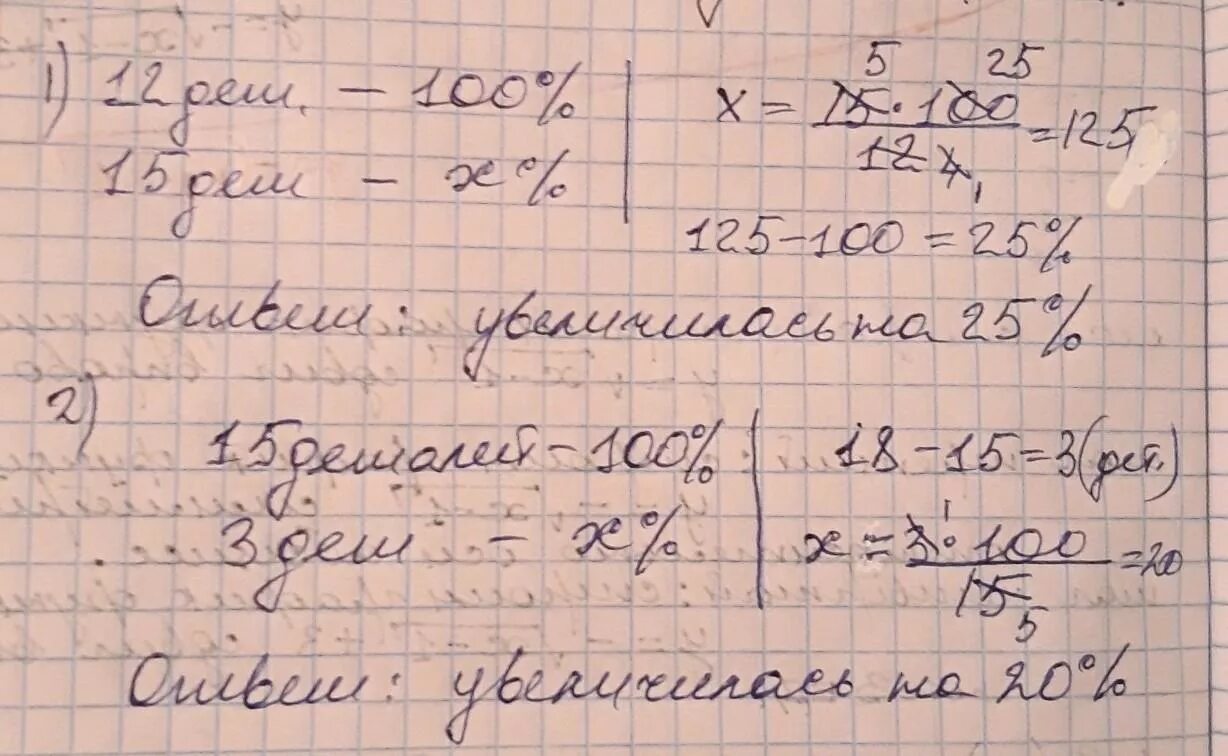 1) 12 дет. – 100%
15 дет – x%
x = 15·100 / 12 = 125
5 25
4 1
125 – 100 = 25%
Ответ: увеличилась на 25%
2)
15 деталей – 100%
3 дет – x%
18 – 15 = 3 (дет.)
x = 3·100 / 15 = 20
1
5
Ответ: увеличилась на 20%